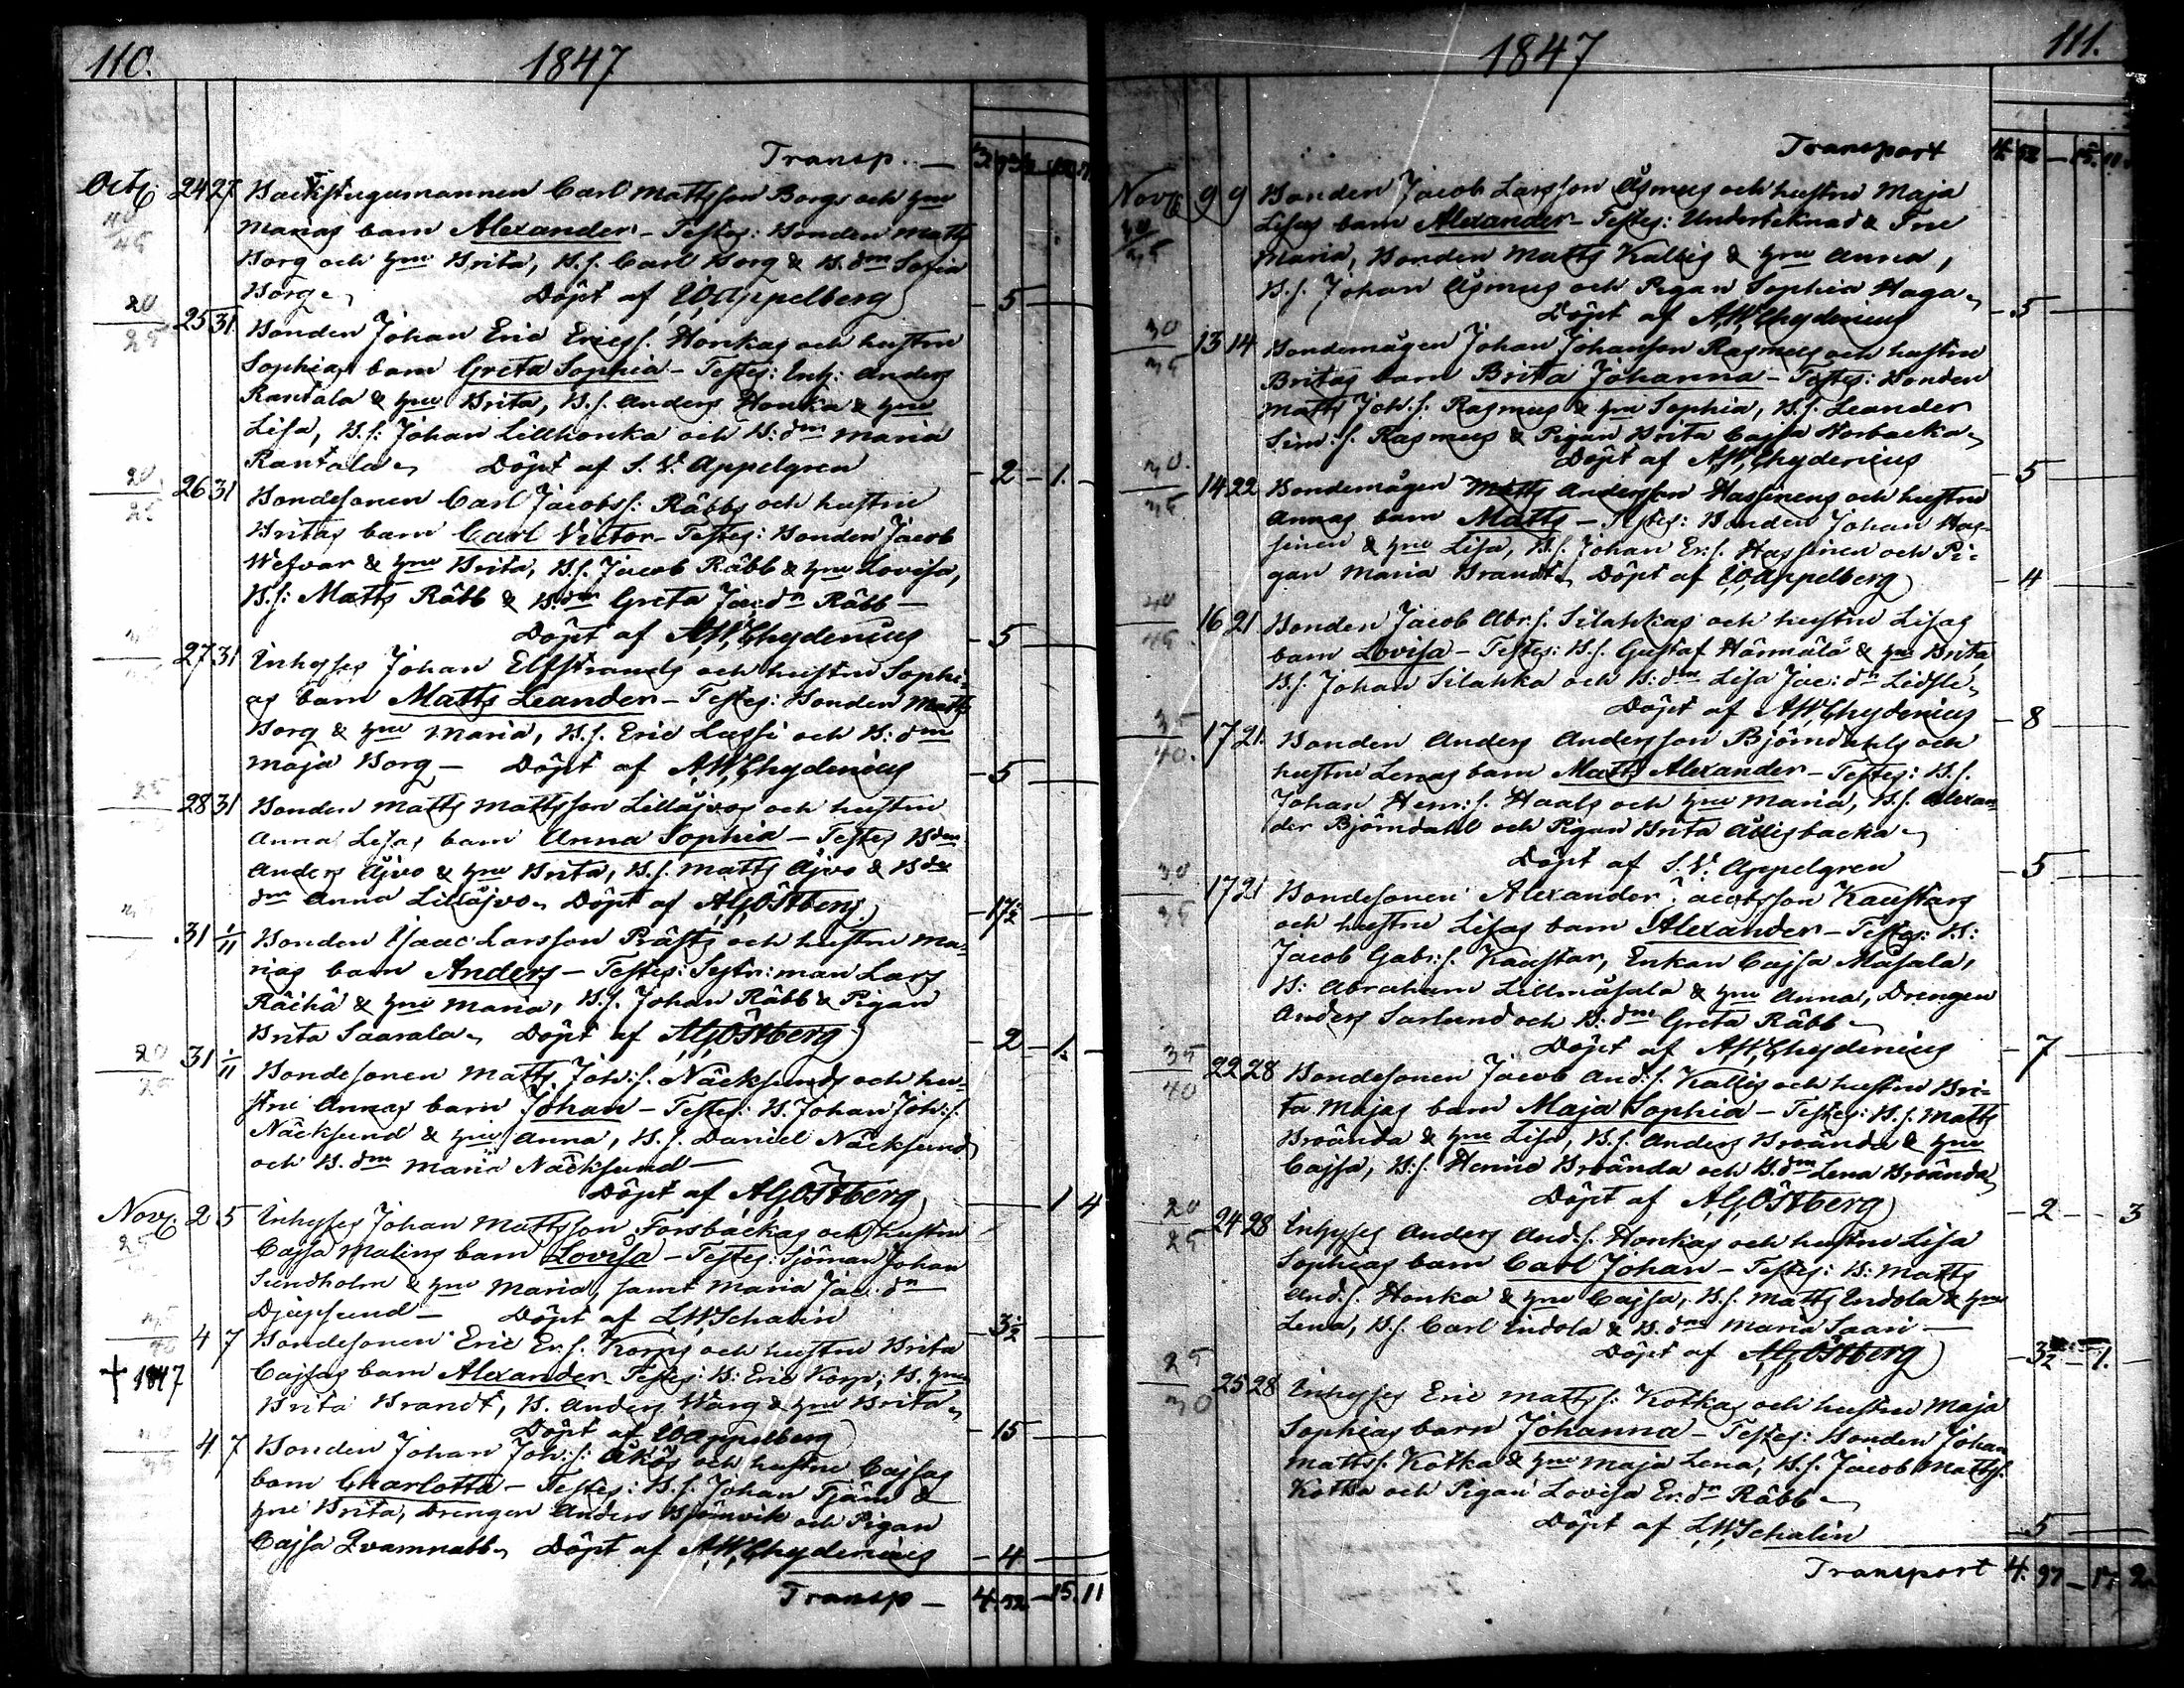 110.
1847
Transp. —
Octb. 24 27 Backstugumannen Carl Mattsson Borgs och hne
Marias barn Alexander – Testes: Bonden Matts
Borg och hne Brita, B.s. Carl Borg & B.dm Sofia
Borg. Döpt af W Appelberg – 5 –
20 25 25 31 Bonden Johan Eric Erics. Honkas och hustru
Sophias barn Greta Sophia – Testes: Inh: Anders
Rantala & hne Brita, B.s. Anders Honka & hne
Lisa, B.s: Johan Lillhonka och B:dm Maria
Rantala. Döpt af S. V. Appelgren – 2 – 1. –
20 25 26 31 Bondesonen Carl Jacobss: Råbbs och hustru
Britas barn Carl Victor – Testes: Bonden Jacob
Wefvar & hne Brita, B.s. Jacob Råbb & hne Lovisa,
B.s: Matts Råbb & B.dm Greta Jac:dr Råbb –
Döpt af A.W. Chydenius – 5 –
27 31 Inhyses Johan Elfstrands och hustru Sophi-
as barn Matts Leander – Testes: Bonden Matts
Borg & hne Maria, B.s. Eric Lassi och B:dm
Maja Borg – Döpt af A.W. Chydenius – 5 –
28 31 Bonden Matts Mattsson Lillåjvos och hustru
Anna Lisas barn Anna Sophia – Testes Bdn
Anders Åjvo & hne Brita, B.s. Matts Åjvo & Bde
dm Anna Lillåjvo. Döpt af A.G. Östberg – 17½ –
31 1/11 Bonden Isaac Larsson Prästs och hustru Ma-
rias barn Anders – Testes: Sytn:man Lars
Räihä & hne Maria, B.s. Johan Råbb & Pigan
Brita Saarala. Döpt af A.G. Östberg – 2 – 1. –
20 25 31 1/11 Bondesonen Matts Joh:s. Näcksunds och hu-
stru Annas barn Johan – Testes: B. Johan Joh:s.
Näcksund & hne Anna, B.s. Daniel Näcksund
och B.dm Maria Näcksund –
Döpt af A.G. Östberg – 1 4
Novb. 2 5 Inhyses Johan Mattsson Forsbackas och hustru
Cajsa Malins barn Lovisa – Testes: Sjöman Johan
Sundholm & hne Maria, samt Maria Jac.dr
Djupsund – Döpt af L.W. Schalin – 3½ –
4 7 Bondesonen Eric Er.s. Korps och hustru Brita
† 1847 Cajsas barn Alexander – Testes: B: Eric Korp, B. hne
Brita Brandt, B. Anders Warg & hne Brita.
Döpt af W Appelberg – 15 –
4 7 Bonden Johan Joh:s: Åkös och hustru Cajsas
barn Charlotta – Testes: B.s. Johan Tjäru &
hne Brita, Drengen Anders Björnvik och Pigan
Cajsa Qvarnnabb. Döpt af A.W. Chydenius – 4 –
Transp – 4. 52 – 15. 11
1847
111.
Transport 4. 52 – 15. 11
Novb. 9 9 Bonden Jacob Larsson Åsmus och hustru Maja
Lisas barn Alexander – Testes: Undertecknad & Fru
Maria, Bonden Matts Kallis & hne Anna,
B.s. Johan Åsmus och Pigan Sophia Haga.
Döpt af A.W. Chydenius – 5 –
30 35 13 14 Bondemågen Johan Johansson Rasmus och hustru
Britas barn Brita Johanna – Testes: Bonden
Matts Joh.s: Rasmus & hne Sophia, B.s. Leander
Sim:s. Rasmus & Pigan Brita Cajsa Storbacka.
Döpt af A.W. Chydenius – 5 –
14 22 Bondemågen Matts Andersson Hassinens och hustru
Annas barn Matts – Testes: Bonden Johan Has-
sinen & hne Lisa, B.s. Johan Er.s. Hassinen och Pi-
gan Maria Brandt. Döpt af W Appelberg – 4 –
40 45 16 21 Bonden Jacob Abr:s. Silahkas och hustru Lisas
barn Lovisa – Testes: B.s. Gustaf Härmälä & hne Brita
B.s. Johan Silahka och B:dm Lisa Jac:dr Lidsle.
Döpt af A.W. Chydenius – 8 –
35 40. 17 21. Bonden Anders Andersson Björndahls och
hustru Lenas barn Matts Alexander – Testes: B.s.
Johan Henr:s. Haals och hne Maria, B.s. Alexan-
der Björndahl och Pigan Brita Ållisbacka.
Döpt af S. V. Appelgren – 5 –
30 35 17 21 Bondesonen Alexander Jacobsson Kaustars
och hustru Lisas barn Alexander – Testes: B.s:
Jacob Gabr:s. Kaustar, Enkan Cajsa Måsala,
B: Abraham Lillmåsala & hne Anna, Drengen
Anders Sarlund och B:dm Greta Råbb.
Döpt af A.W. Chydenius – 7 –
35 40 22 28 Bondesonen Jacob And:s. Kallis och hustru Bri-
ta Majas barn Maja Sophia – Testes: B.s. Matts
Broända & hne Lisa, B.s. Anders Broända & hne
Cajsa, B:s. Henric Broända och B.dm Lena Broända.
Döpt af A.G. Östberg – 2 – 3
20 25 24 28 Inhyses Anders And.s. Honkas och hustru Lisa
Sophias barn Carl Johan – Testes: B: Matts
And.s. Honka & hne Cajsa, B.s. Matts Indola & hne
Lena, B.s. Carl Indola & B.dm Maria Saari –
Döpt af A.G. Östberg – 3½ – 1. –
25 30 25 28 Inhyses Eric Mattss: Kotkas och hustru Maja
Sophias barn Johanna – Testes: Bonden Johan
Mattss. Kotka & hne Maja Lena, B.s. Jacob Mattss.
Kotka och Pigan Lovisa Er.dr Råbb –
Döpt af L.W. Schalin – 5 –
Transport 4. 97 – 17. 2